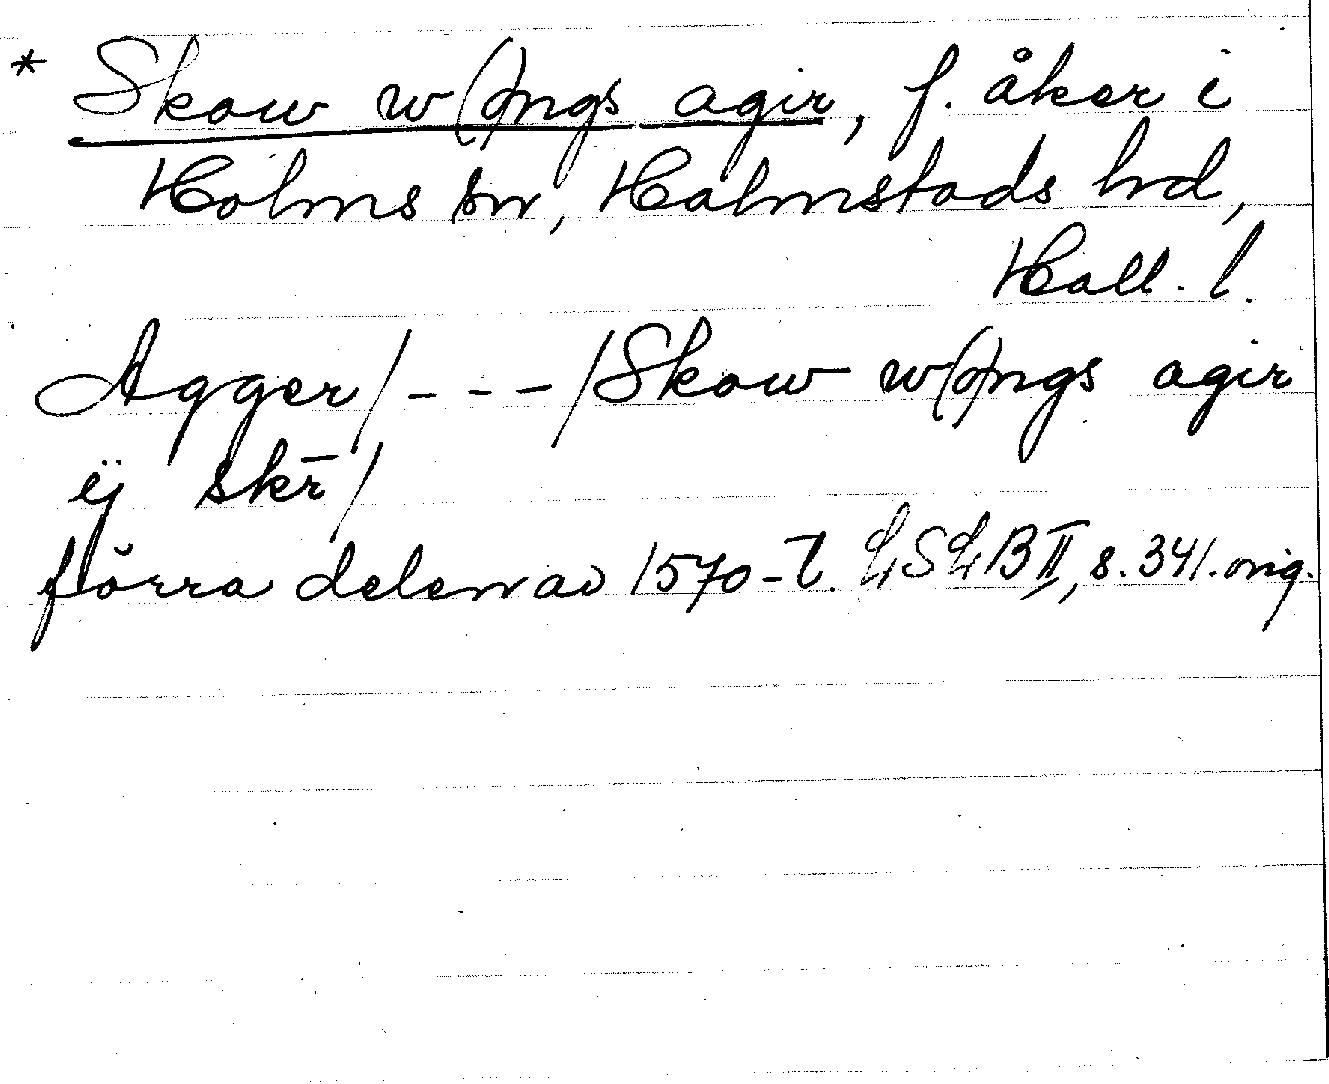 * Skow w(a)ngs agir, f. åker i
Holms sn, Halmstads hd,
Hall. l.
Agger/---/Skow w(a)ngs agir
ij skr̄/
förra delen av 1570-t. LSLB II, s. 341. orig.